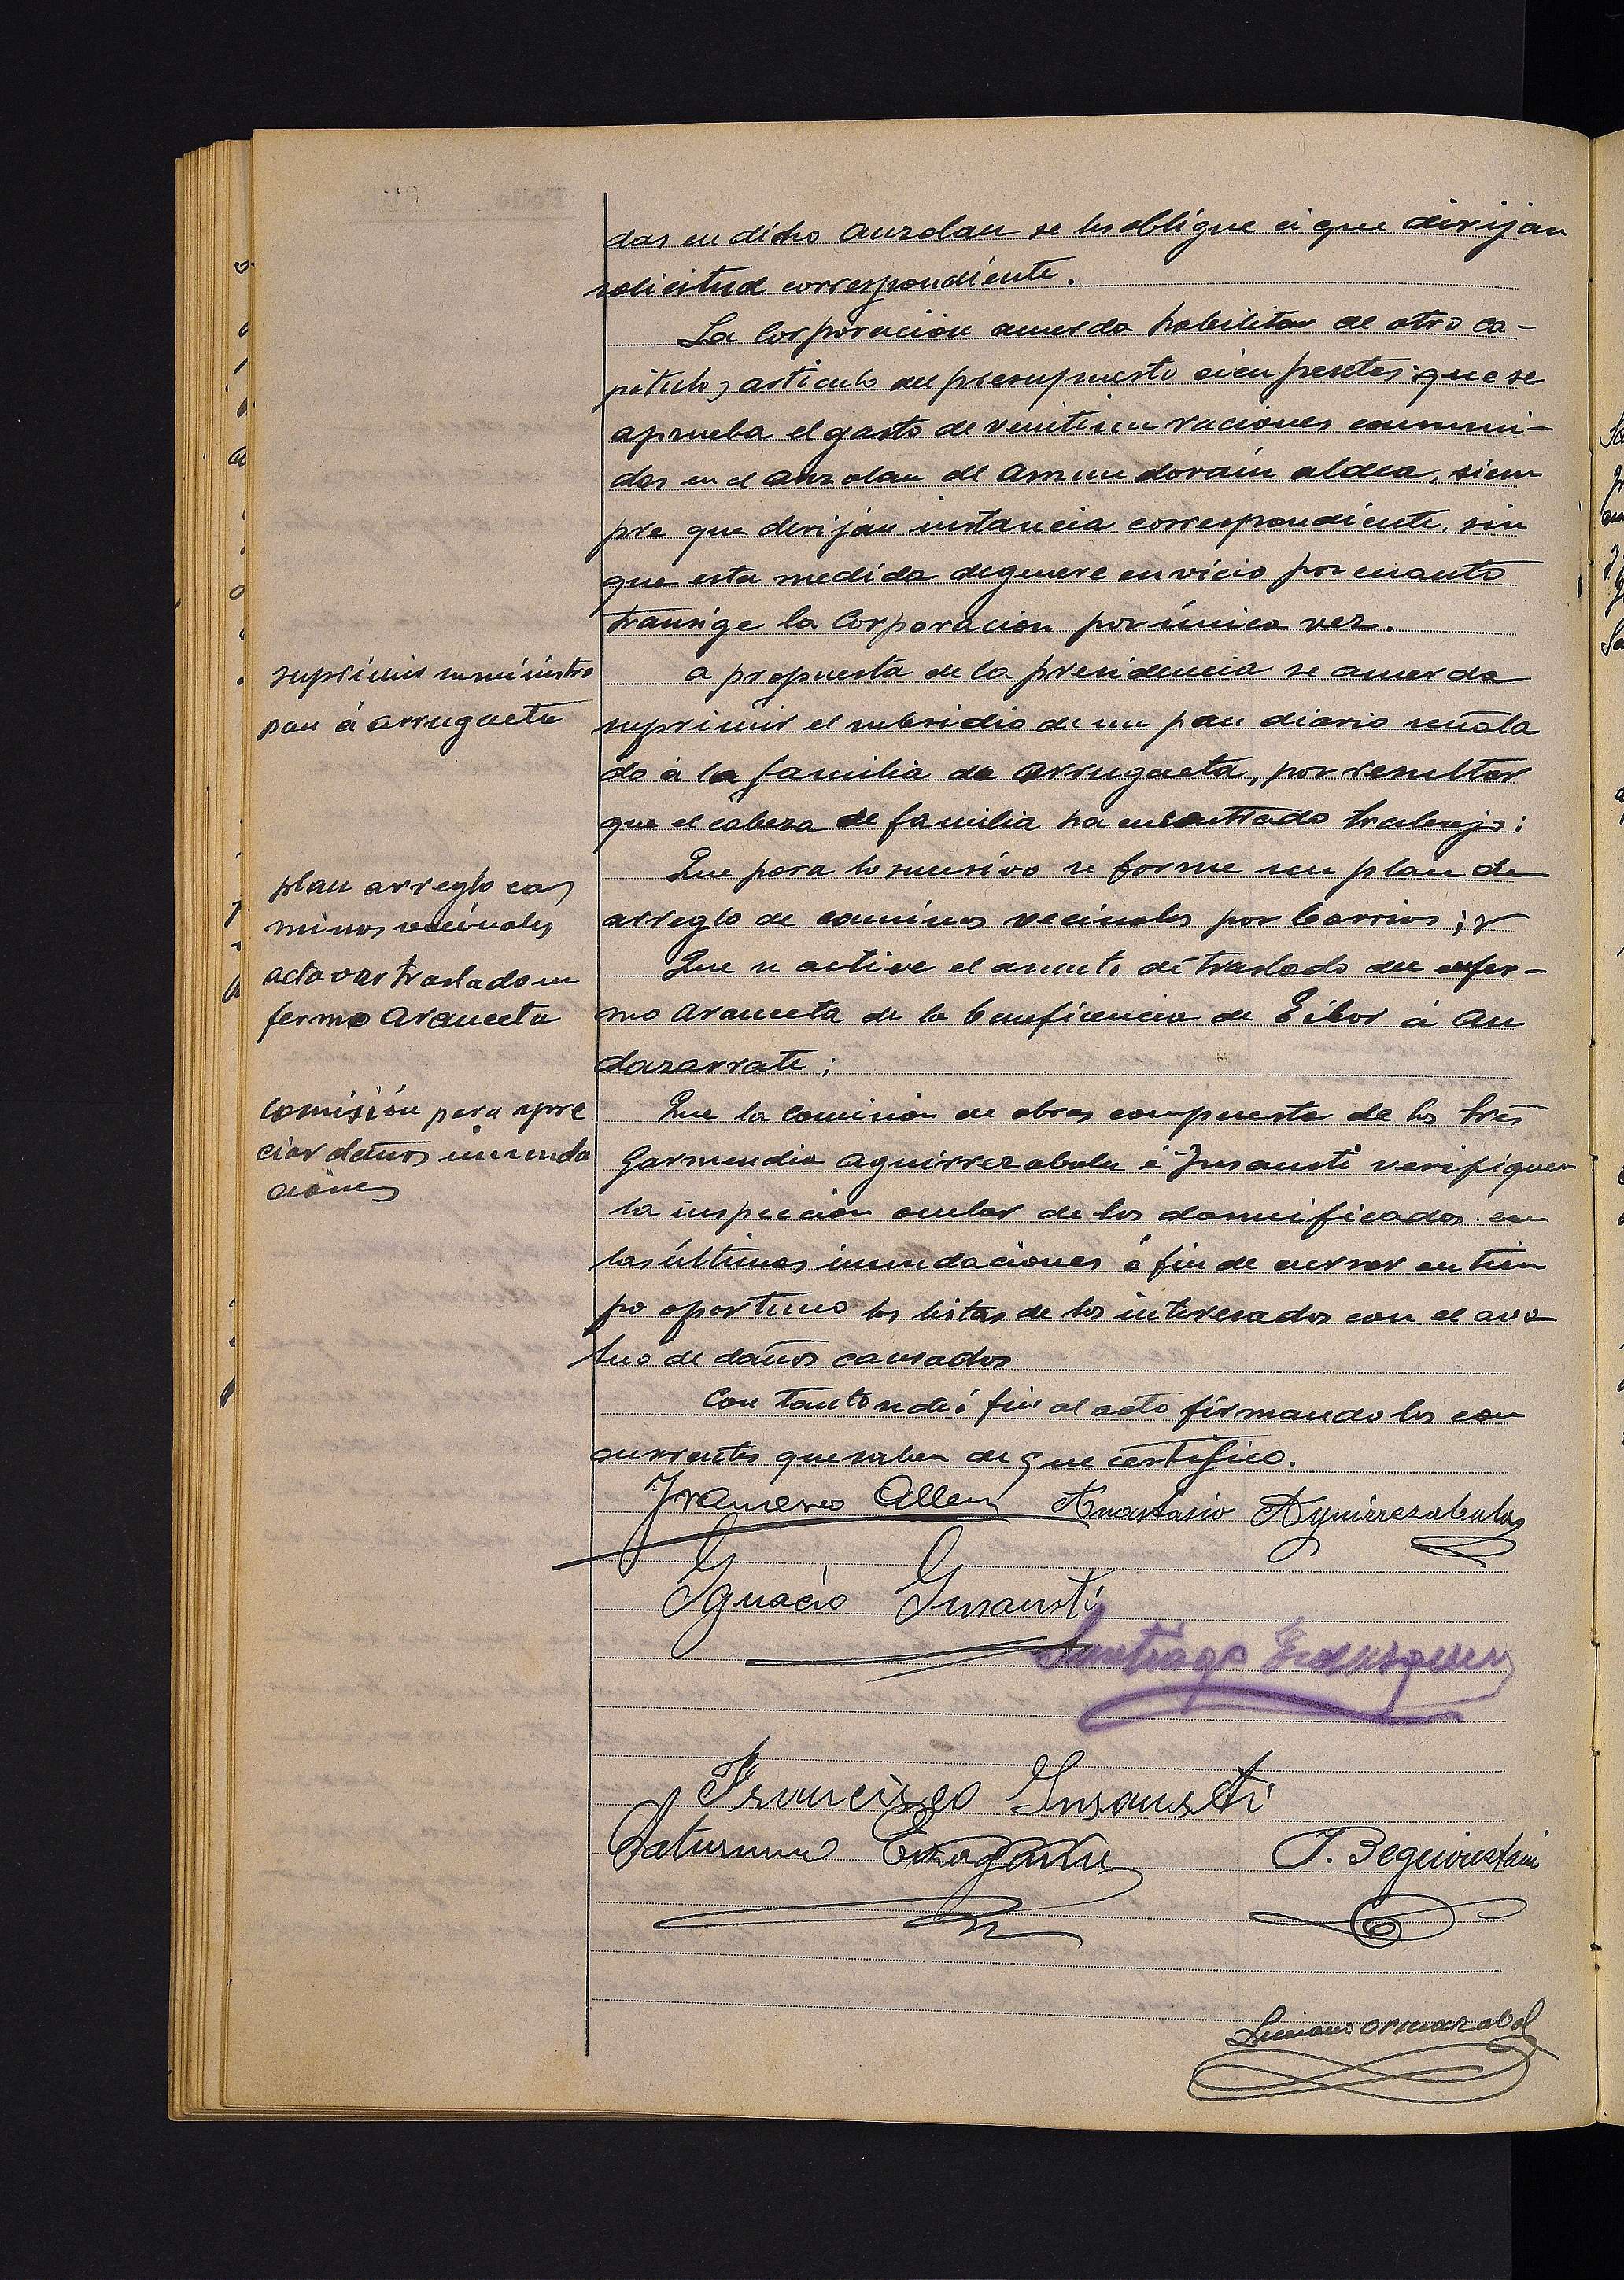 das en dicho auzolan se les obligue á que dirijan
solicitud correspondiente.
La Corporación acuerda habilitar de otro ca-
pitulo y articulo del presupuesto cien pesetas: que se
aprueba el gasto de veintiun raciones consumi-
das en el auzolan del Amundarain aldea, siem
pre que dirijan instancia correspondiente, sin
que esta medida degenere en vicio por cuanto
transige la Corporacion por única vez.
suprimir suministro
pan á Arrugaeta
a propuesta de la presidencia se acuerda
suprimir el subsidio de un pan diario señala
do á la familia de Arrugaeta, por resultar
que el cabeza de familia ha encontrado trabajo:
plan arreglo ca
minos vecinales
Que para lo sucesivo se forme un plan de
arreglo de caminos vecinales por barrios; y
activar traslado en
fermo Aranceta
Que se active el asunto de traslado del enfer-
mo Aranceta de la beneficencia de Eibar á An
dazarrate;
Comisión para apre
ciar daños inunda
ciones
Que la comisión de obras compuesta de los tres
Garmendia Aguirrezabala é Insausti verifiquen
la inspección ocular de los damnificados en
las últimas inundaciones á fin de cursar en tiem
po oportuno las listas de los interesados con el ava
luo de daños causados
Con tanto se dió fin al acto firmando los con
currentes que saben de que certifico.
Francisco Anastasio Aguirrezabala
Ygnacio Insausti
Santiago
Francisco Insausti
Saturnino
J. Beguiristain
Luciano Ormazabal